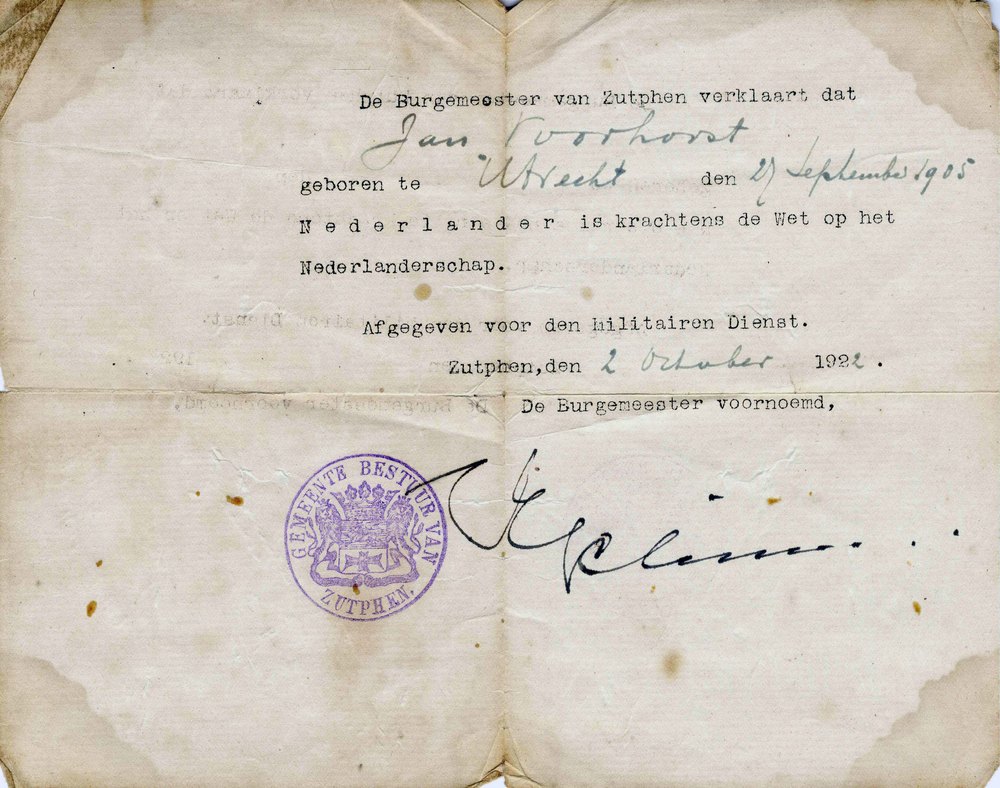 De Burgemeester van Zutphen verklaart dat
Jan Voorhorst
geboren te Utrecht den 27 September 1905
Nederlander is krachtens de Wet op het
Nederlanderschap.
Afgegeven voor den Militairen Dienst.
Zutphen, den 2 October 1922.
De Burgemeester voornoemd,
GEMEENTE BESTUUR VAN
ZUTPHEN.